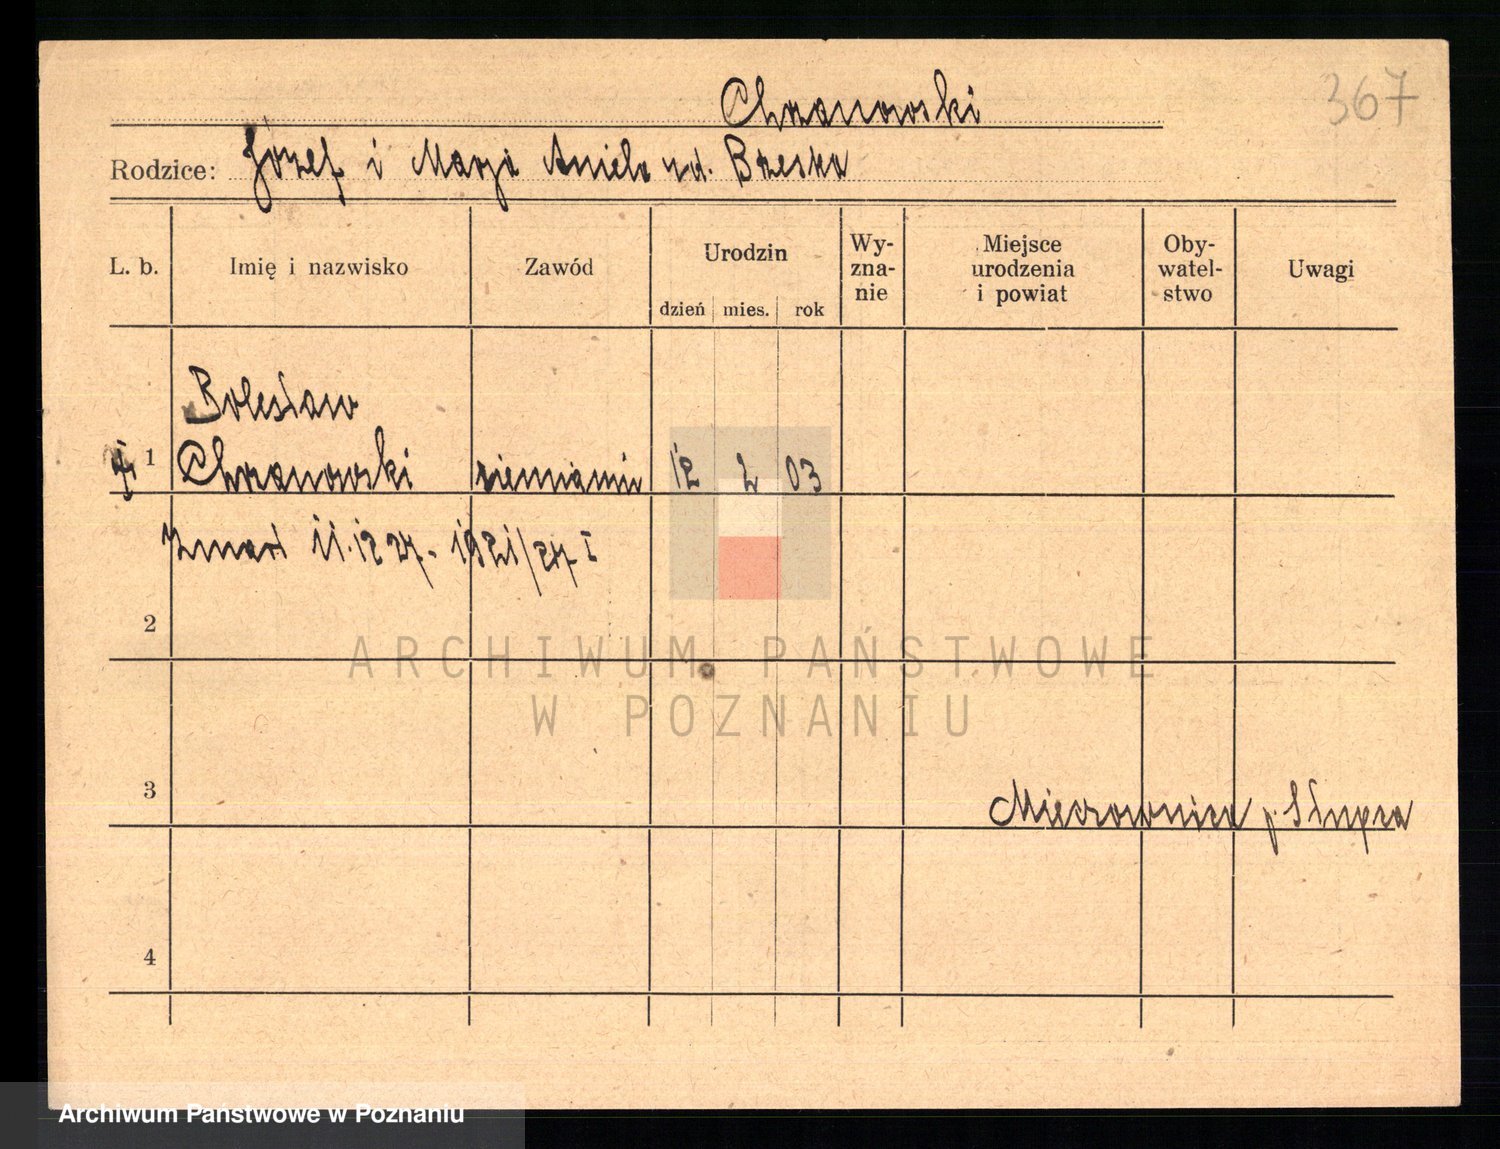 367
Chrzanowski
Rodzice: Józef i Marja Aniela z d. Brzeska
L. b. Imię i nazwisko Zawód Urodzin dzień mies. rok Wy-zna-nie Miejsce urodzenia i powiat Oby-watel-stwo Uwagi
Bolesław
1 Chrzanowski ziemianin 12 2 03
Zmarł 11.12 27. 1921/27 I
2
ARCHIWUM PAŃSTWOWE
W POZNANIU
3 Mieczownica p. Słupca
4
Archiwum Państwowe w Poznaniu